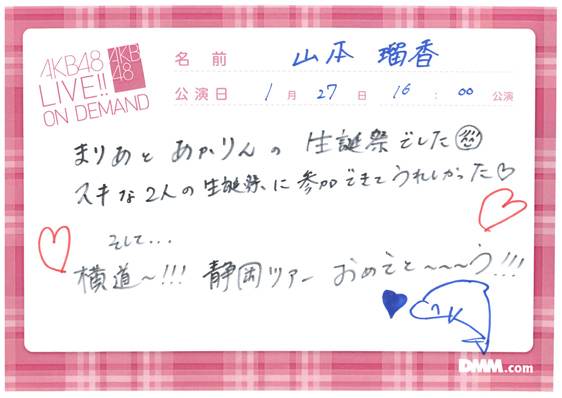 AKB48
LIVE!!
ON DEMAND
AKB
48
名前 山本 瑠香
公演日 1月 27日 16:00 公演
まりあと あかりんの 生誕祭でした
スキな2人の生誕祭に参加できてうれしかった♡
そして...
横道〜!!! 静岡ツアー おめでと〜〜〜う!!!
DMM.com